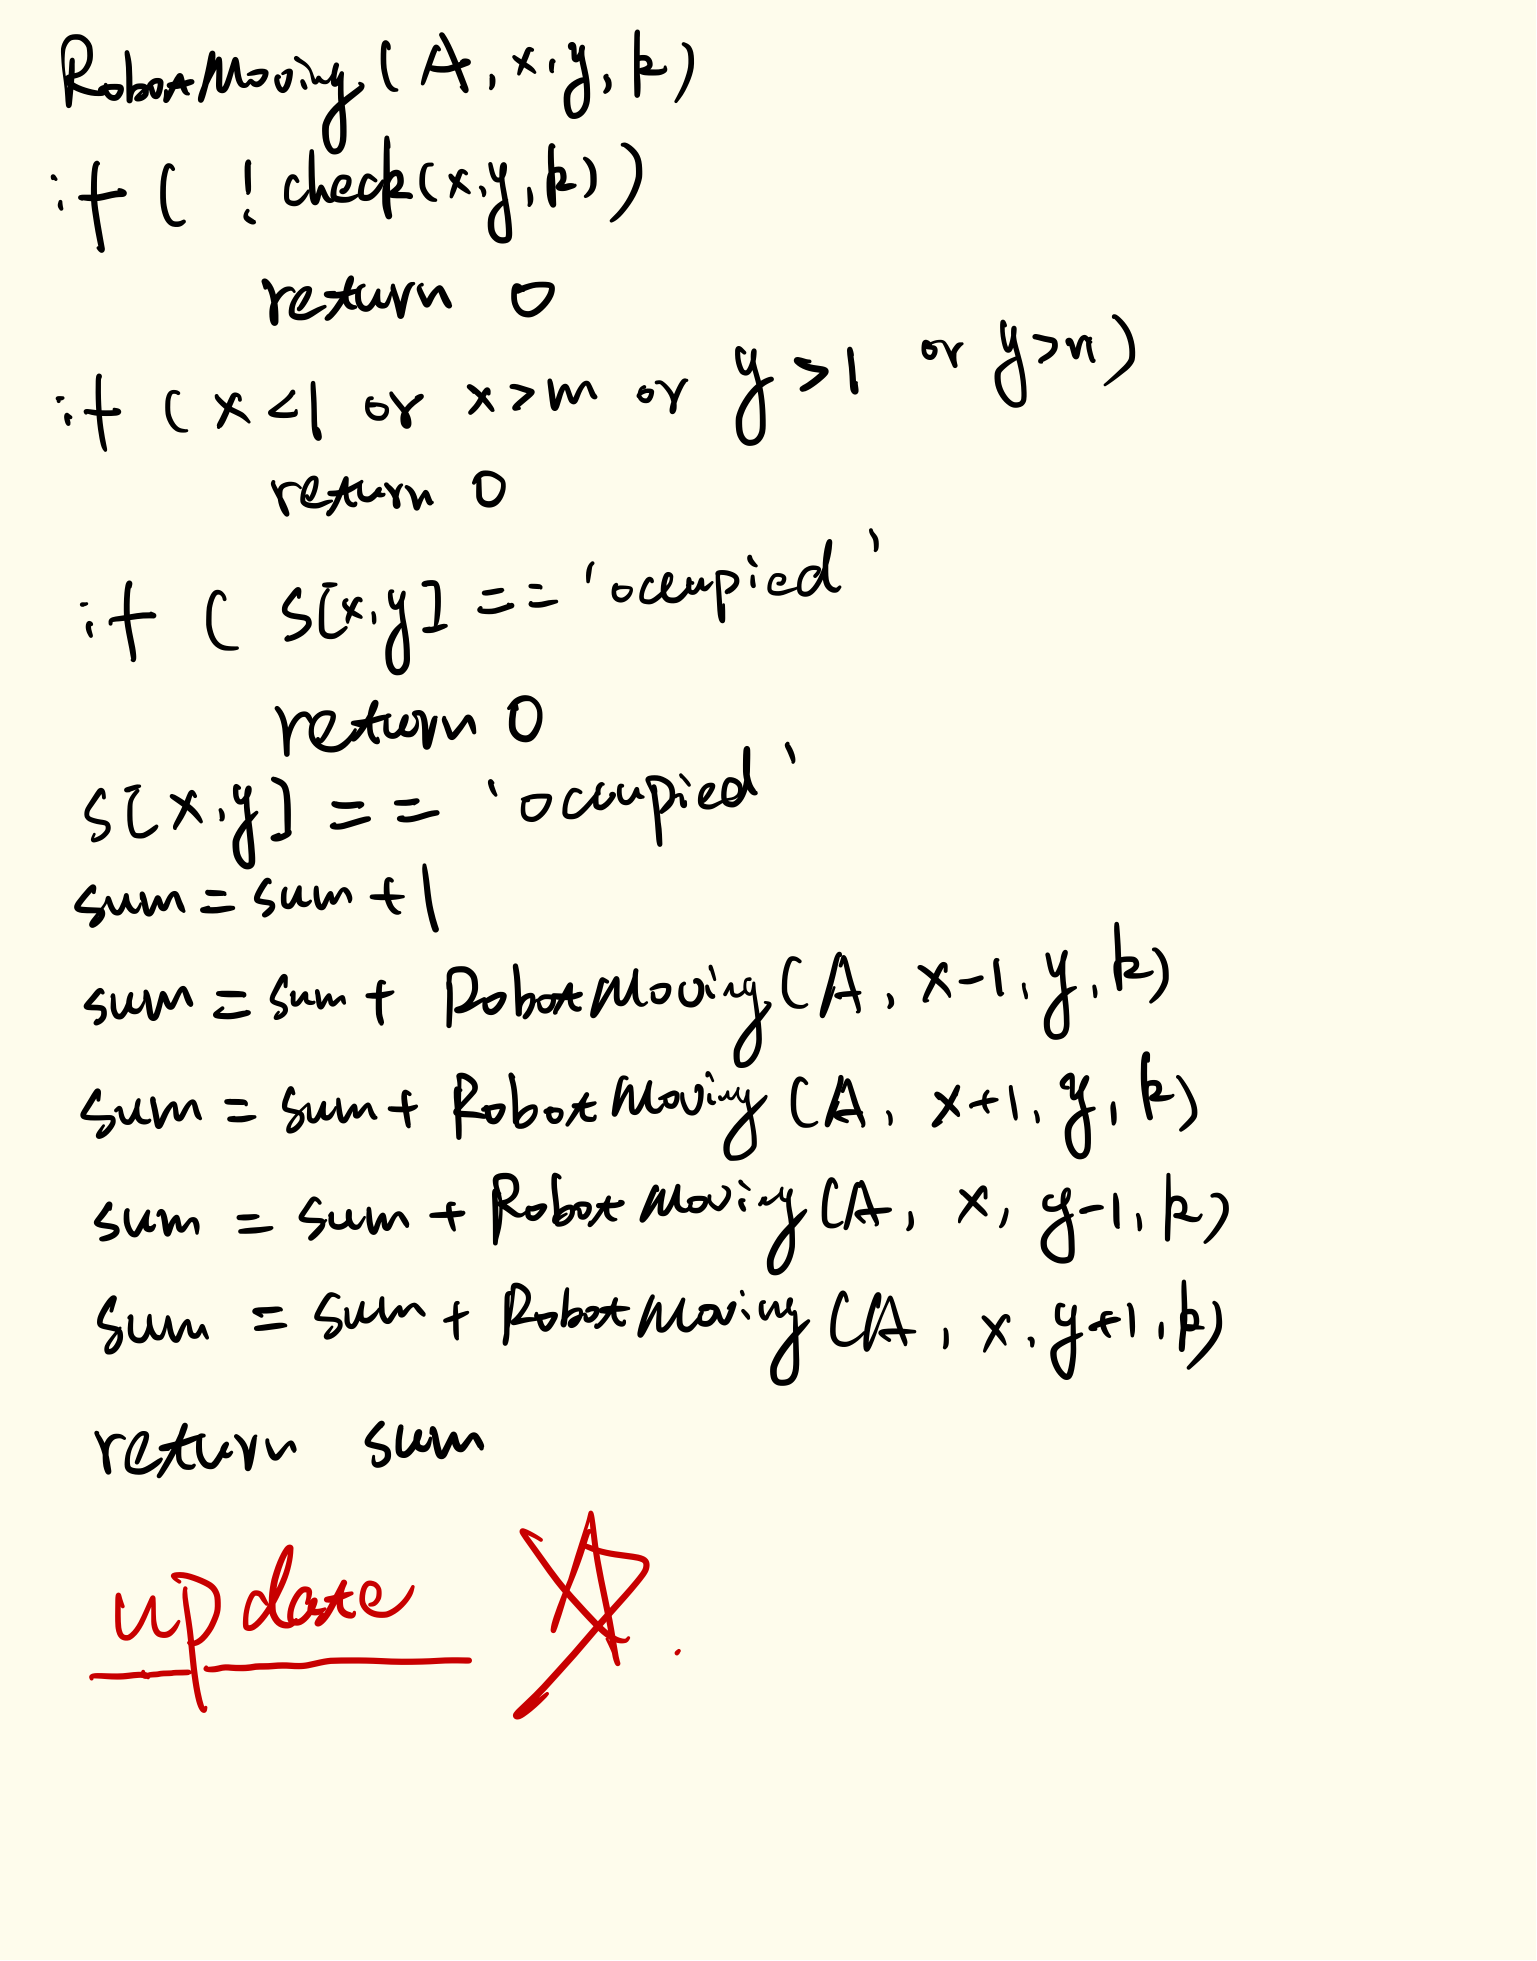 RobotMoving(A, x, y, k)
if ( ! check(x, y, k))
return 0
if ( x < 1 or x > m or y > 1 or y > n)
return 0
if ( s[x, y] == 'occupied'
return 0
s[x, y] == 'occupied'
sum = sum + 1
sum = sum + RobotMoving(A, x-1, y, k)
sum = sum + RobotMoving(A, x+1, y, k)
sum = sum + RobotMoving(A, x, y-1, k)
sum = sum + RobotMoving(A, x, y+1, k)
return sum
update